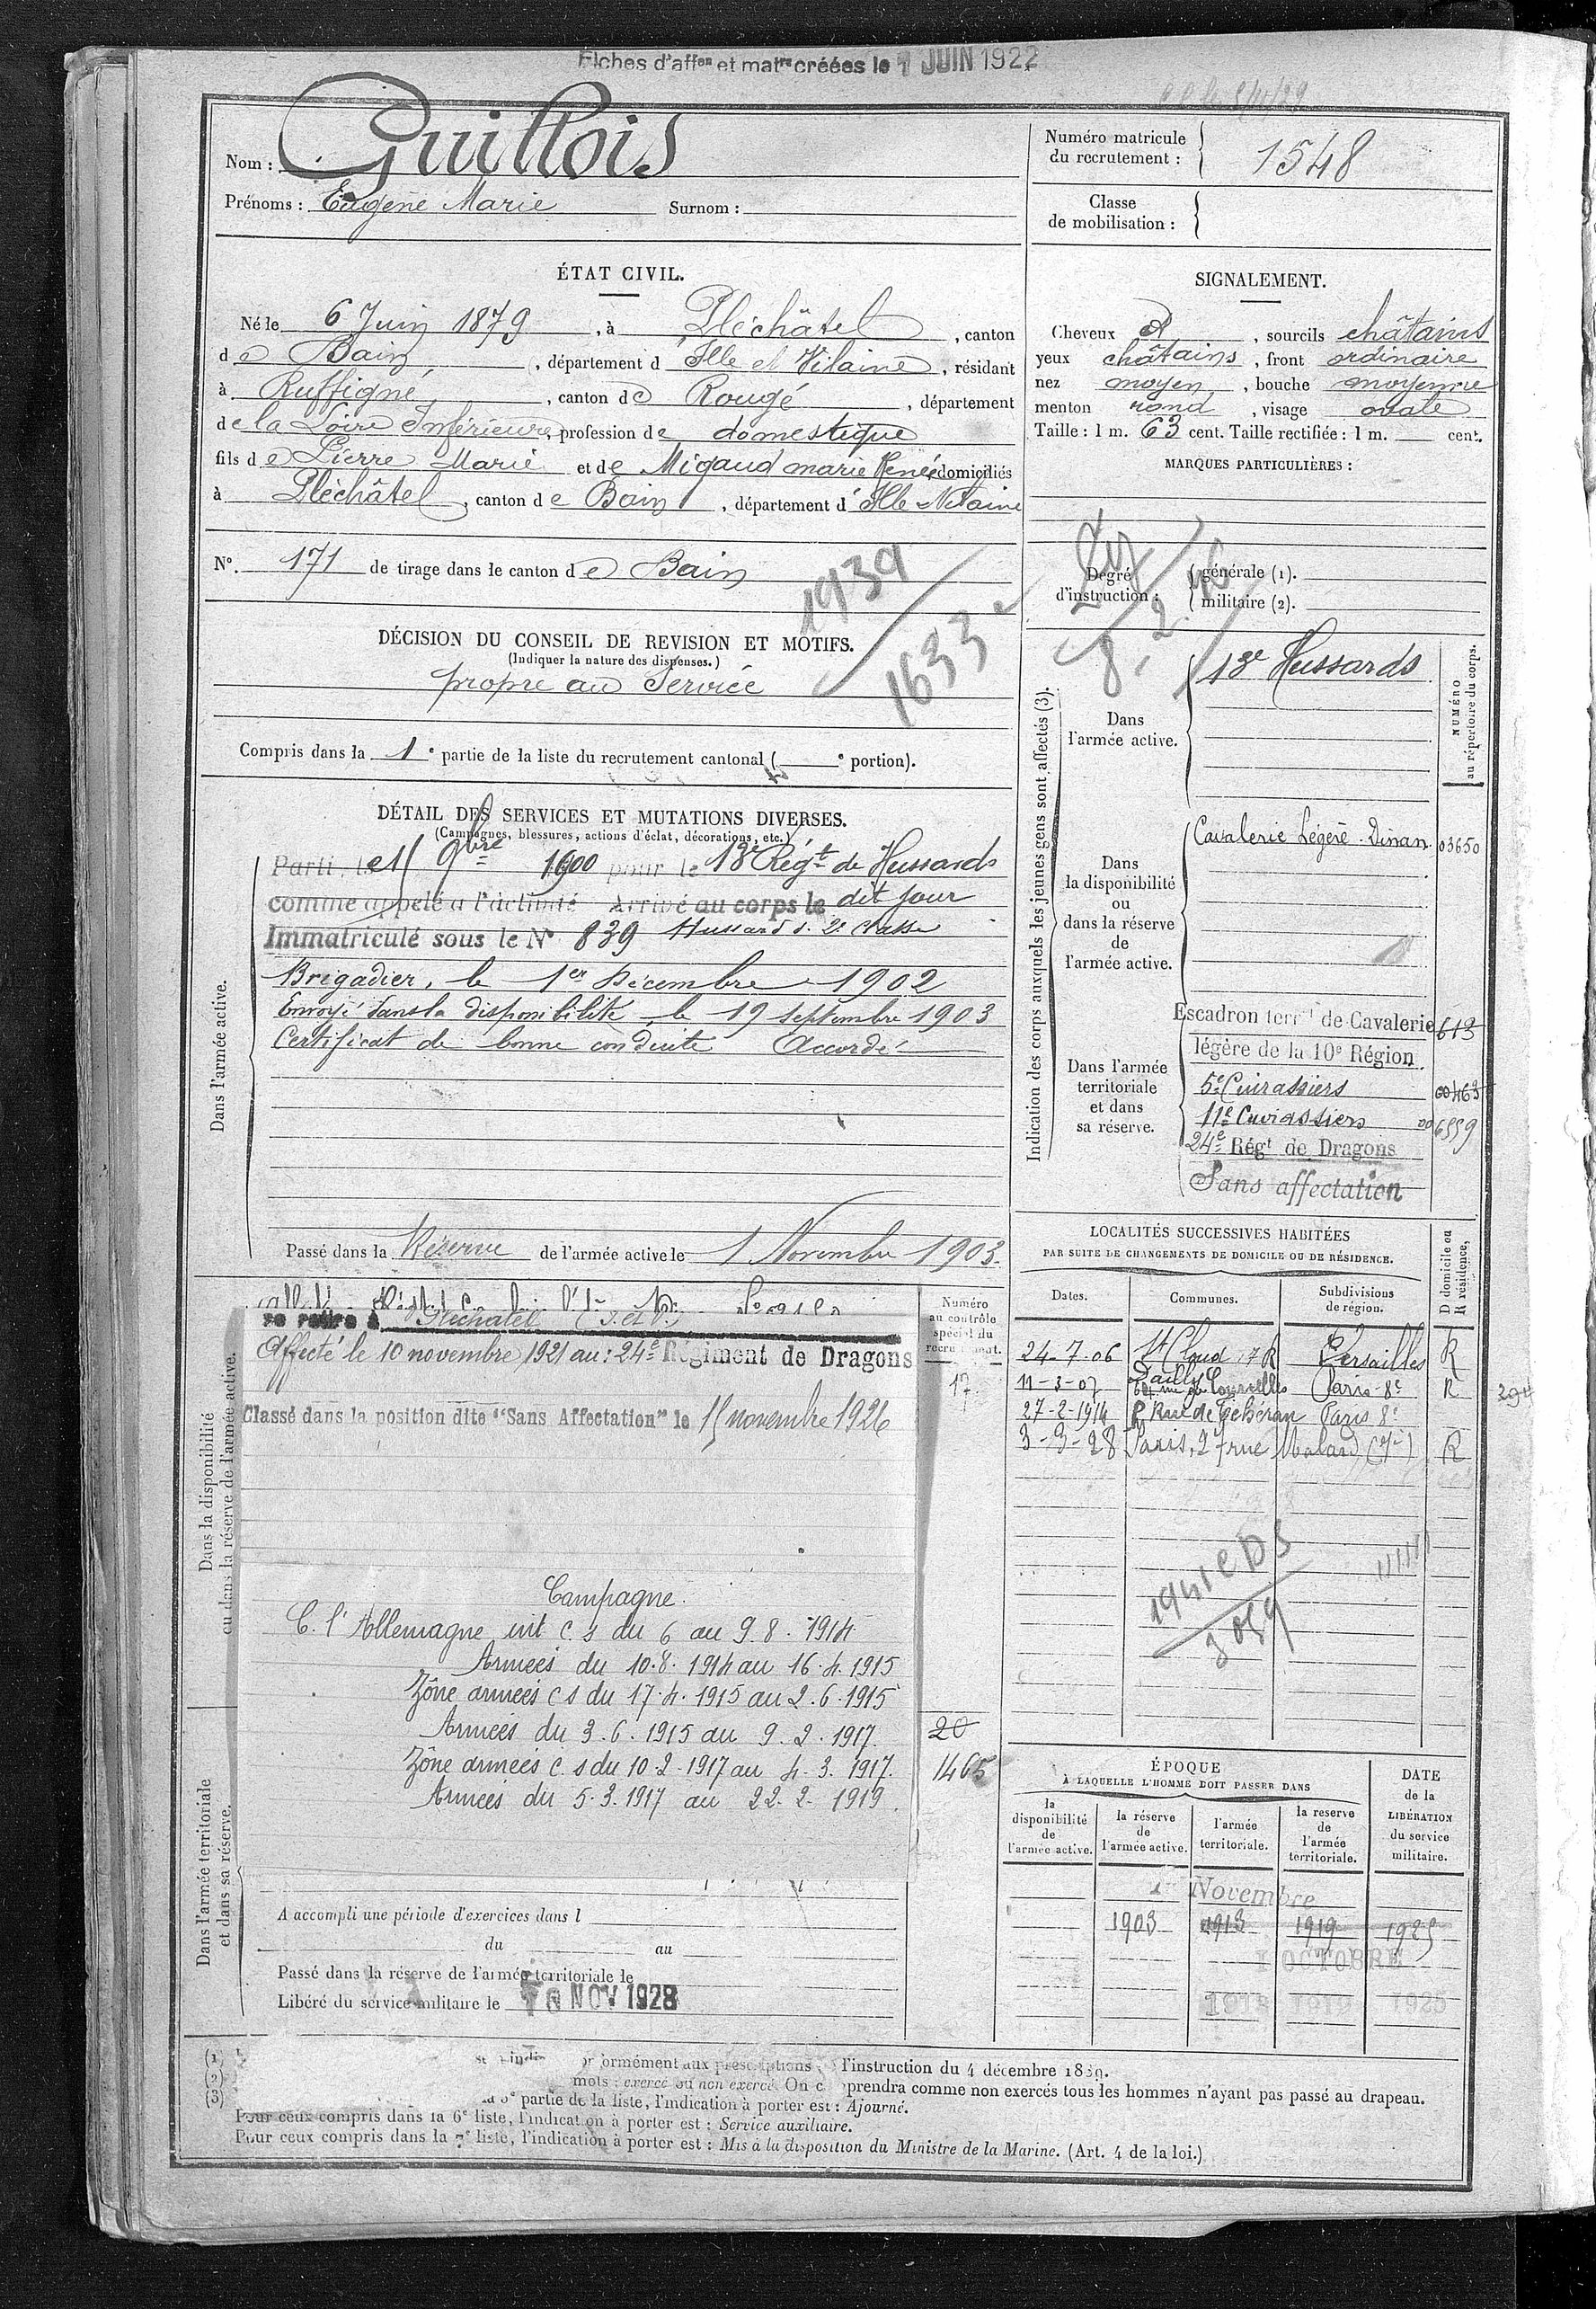 Fiches d'affon et matre créées le 1 JUIN 1922
Nom : Guillois
Prénoms : Eugène Marie Surnom :
Numéro matricule du recrutement : 1548
Classe de mobilisation :
ÉTAT CIVIL.
Né le 6 Juin 1879, à Pléchâtel, canton
de Bain, département d'Ille et Vilaine, résidant
à Ruffigné, canton de Rougé, département
de la Loire Inférieure, profession de domestique
fils de Pierre Marie et de Migaud marie Renée, domiciliés
à Pléchâtel, canton de Bain, département d'Ille Vilaine
N°. 171 de tirage dans le canton de Bain
1939
1633
SIGNALEMENT.
Cheveux et, sourcils châtains
yeux châtains, front ordinaire
nez moyen, bouche moyenne
menton rond, visage ovale
Taille : 1 m. 63 cent. Taille rectifiée : 1 m. cent.
MARQUES PARTICULIÈRES :
Degré d'instruction : générale (1).
militaire (2).
DÉCISION DU CONSEIL DE REVISION ET MOTIFS.
(Indiquer la nature des dispenses.)
propre au Service
Compris dans la 1e partie de la liste du recrutement cantonal ( e portion).
DÉTAIL DES SERVICES ET MUTATIONS DIVERSES.
(Campagnes, blessures, actions d'éclat, décorations, etc.)
Dans l'armée active.
Parti le 15 9bre 1900 pour le 13e Régt de Hussards
comme appelé à l'activité Arrivé au corps le dit jour
Immatriculé sous le N° 839 Hussard d. 2e classe
Brigadier, le 1er Décembre 1902
Envoyé dans la disponibilité le 19 septembre 1903
Certificat de bonne conduite Accordé
Passé dans la Réserve de l'armée active le 1 Novembre 1903.
Indication des corps auxquels les jeunes gens sont affectés (3).
NUMÉRO au répertoire du corps.
Dans l'armée active.
13e Hussards
Dans la disponibilité ou dans la réserve de l'armée active.
Cavalerie Légère Dinan 03650
Dans l'armée territoriale et dans sa réserve.
Escadron terrl de Cavalerie 613
légère de la 10e Région
5e Cuirassiers 00463
11e Cuirassiers 006559
24e Régt de Dragons
Sans affectation
Dans la disponibilité ou dans la réserve de l'armée active.
se retire à Pléchâtel (I. et V.)
Affecté le 10 novembre 1921 au : 24e Régiment de Dragons
Classé dans la position dite "Sans Affectation" le 15 novembre 1926
Campagne.
C. l'Allemagne int c. s du 6 au 9. 8. 1914
Armées du 10. 8. 1914 au 16. 4. 1915
Zône armées c s du 17. 4. 1915 au 2. 6. 1915
Armées du 3. 6. 1915 au 9. 2. 1917.
Zône armées c. s du 10. 2. 1917 au 4. 3. 1917.
Armées du 5. 3. 1917 au 22. 2. 1919.
Numéro au contrôle spécial du
17.
20
1465
Dans l'armée territoriale et dans sa réserve.
A accompli une période d'exercices dans l
du au
Passé dans la réserve de l'armée territoriale le
Libéré du service militaire le 10 NOV 1928
LOCALITÉS SUCCESSIVES HABITÉES
PAR SUITE DE CHANGEMENTS DE DOMICILE OU DE RÉSIDENCE.
D domicile ou R résidence,
Dates. Communes. Subdivisions de région.
24-7-06 St Cloud, 7 R Dailly Versailles R
11-3-07 rue de Courcelles Paris 8e R
27-2-1914 Rue de Téhéran Paris 8e
3-3-28 Paris, 27 rue Malard R
ÉPOQUE
À LAQUELLE L'HOMME DOIT PASSER DANS
la disponibilité de l'armée active.
la réserve de l'armée active.
l'armée territoriale.
la reserve de l'armée territoriale.
DATE de la LIBÉRATION du service militaire.
1er Novembre
1903 1913 1919 1925
1 OCTOBRE
1919 1925
l'instruction du 4 décembre 1889.
mots : exercé ou non exercé. On comprendra comme non exercés tous les hommes n'ayant pas passé au drapeau.
partie de la liste, l'indication à porter est : Ajourné.
Pour ceux compris dans la 6e liste, l'indication à porter est : Service auxiliaire.
Pour ceux compris dans la 7e liste, l'indication à porter est : Mis à la disposition du Ministre de la Marine. (Art. 4 de la loi.)